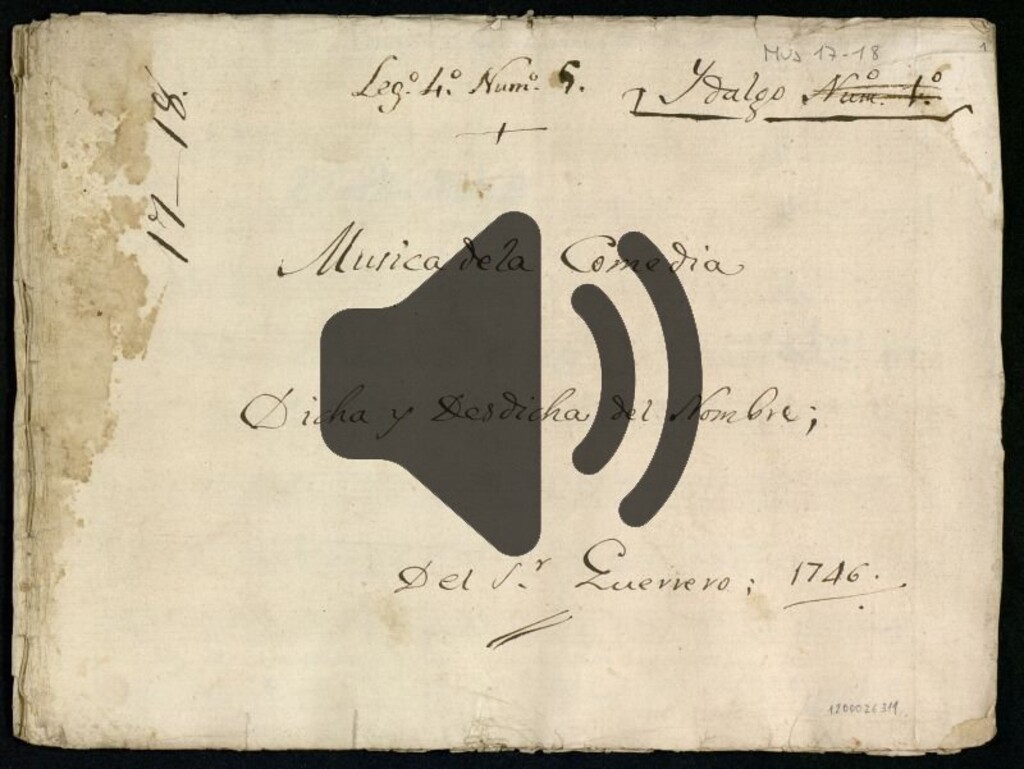 MUS 17-18
1
Leg.º 4.º Num.º 5.
Ydalgo Num.º 1.º
17-18.
Musica dela Comedia
Dicha y Desdicha del Nombre;
Del S.r Guerrero; 1746.
1200026311